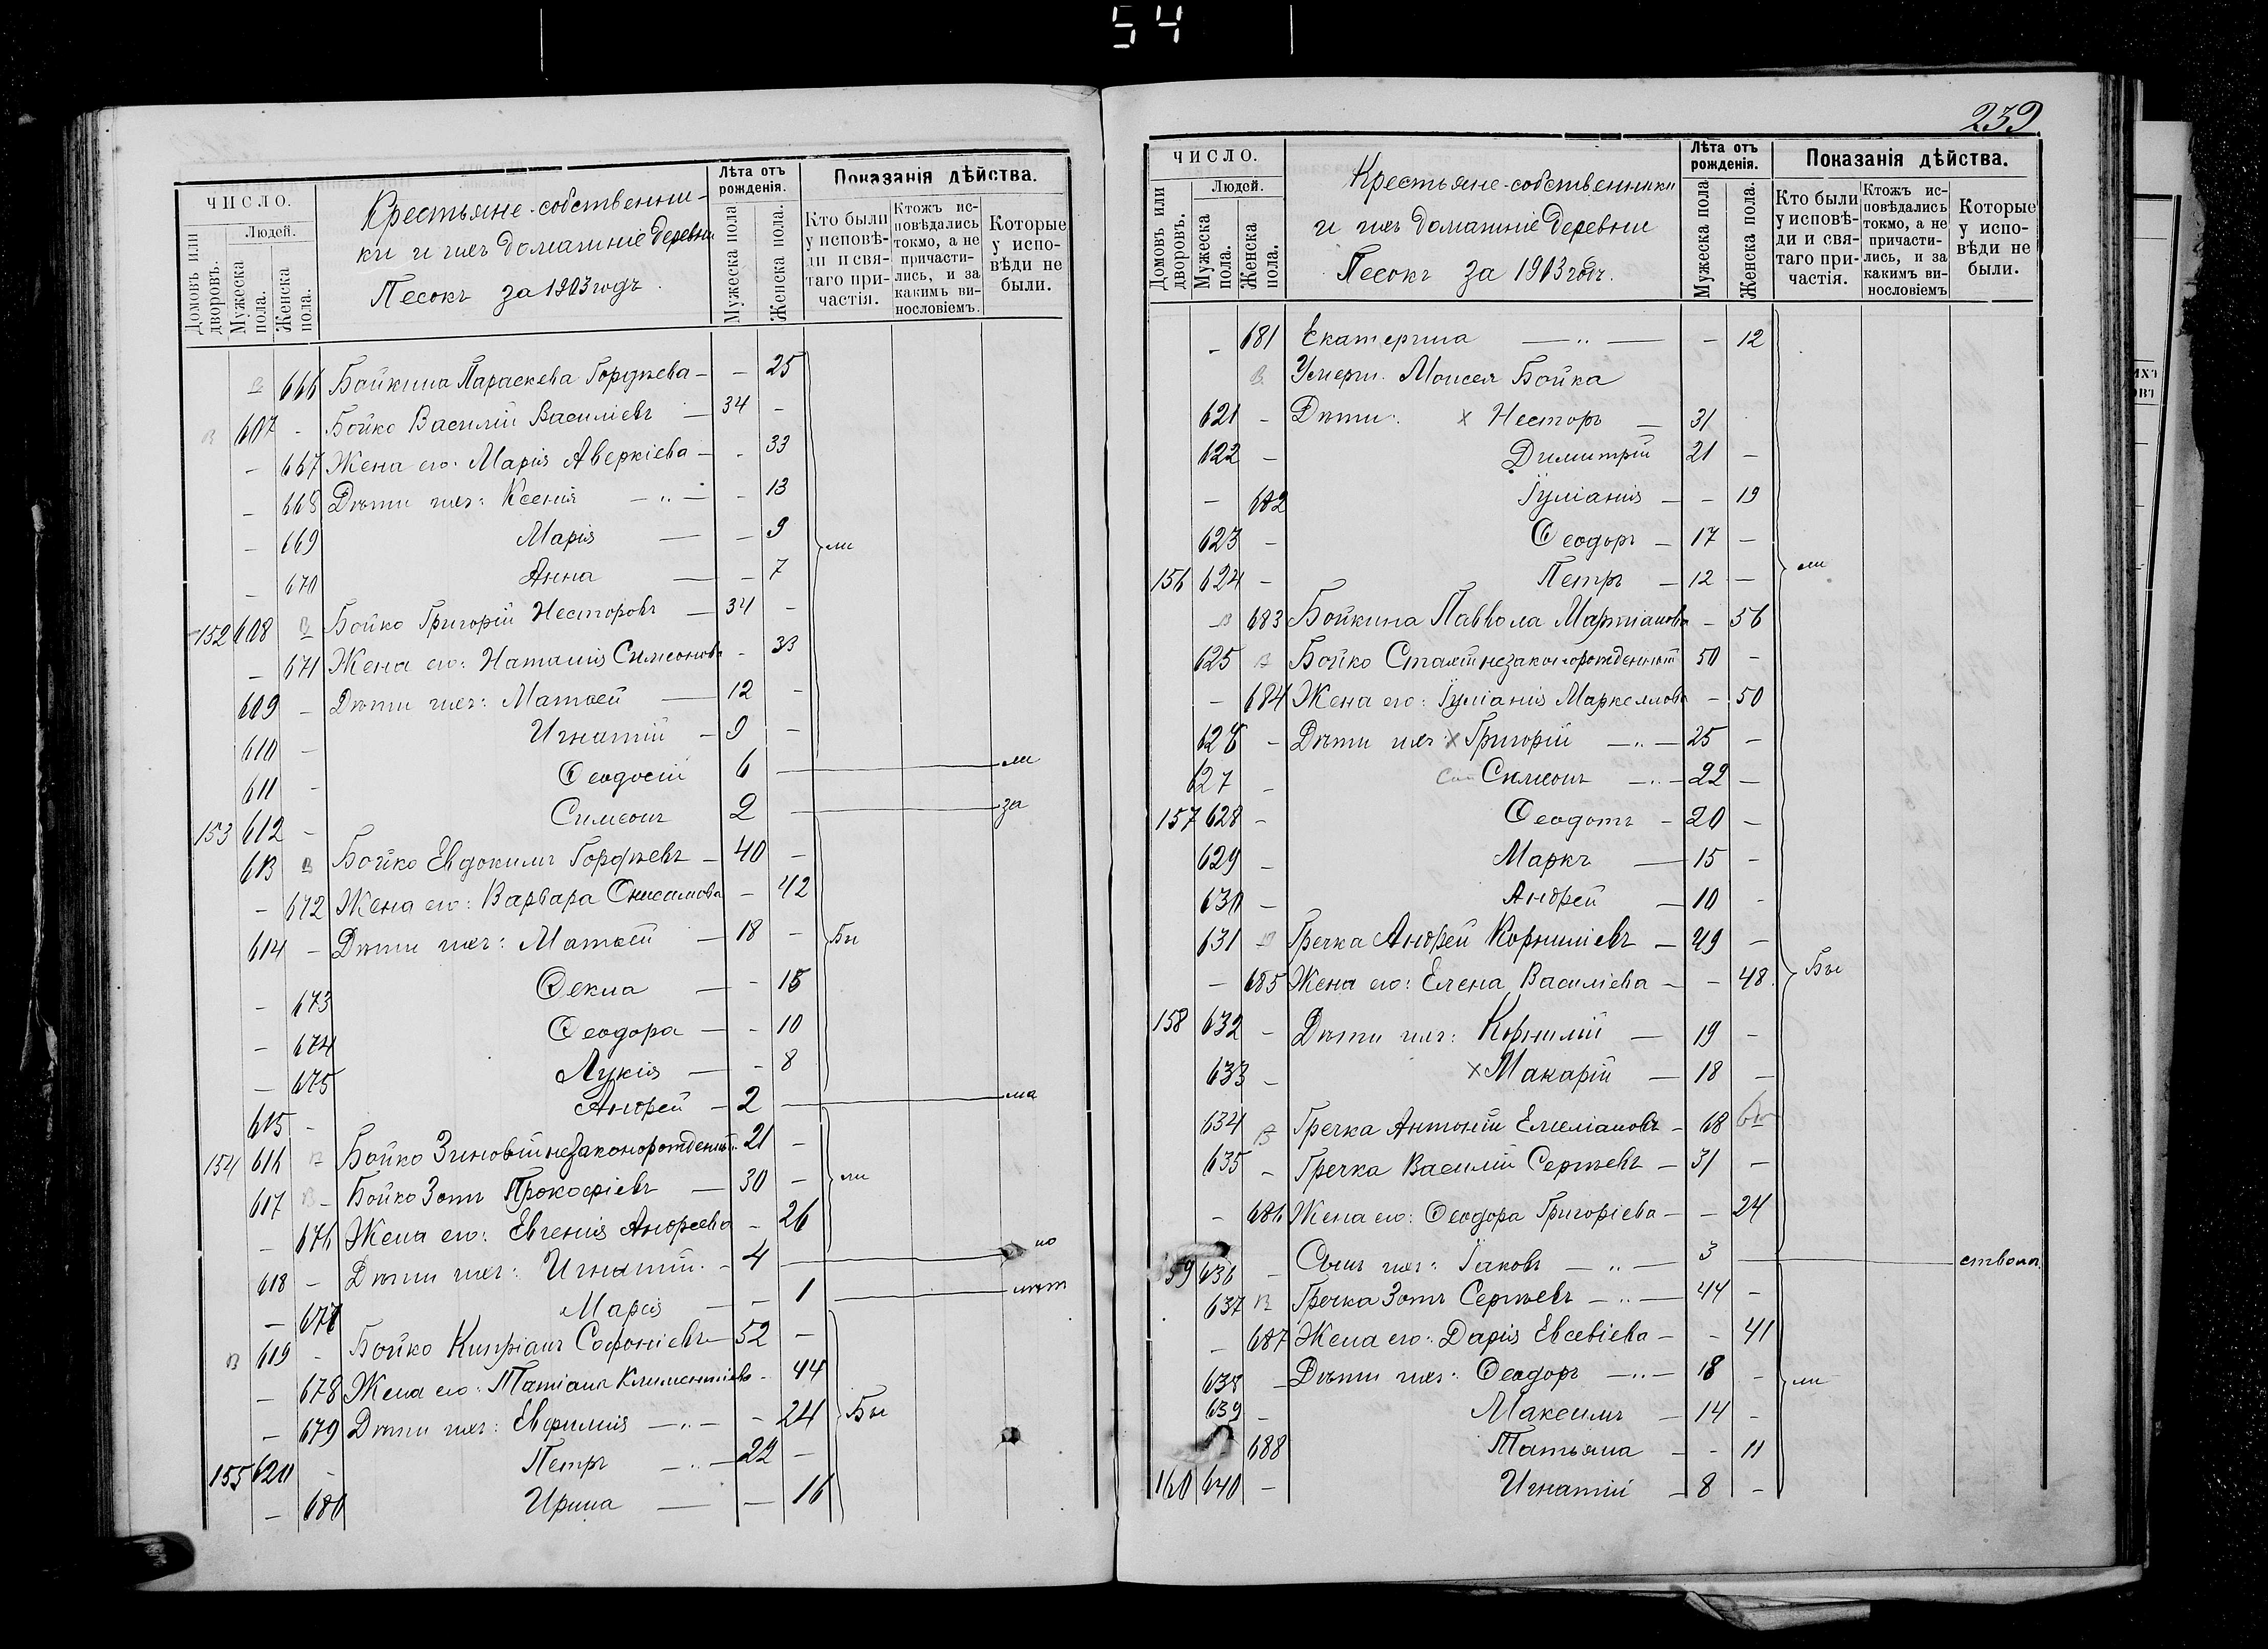 54
ЧИСЛО.
Домовъ или дворовъ.
Людей.
Мужеска пола.
Женска пола.
Крестьяне-собственни-
ки и ихъ домашніе деревни
Песокъ за 1903 годъ.
Лѣта отъ рожденія.
Мужеска пола
Женска пола.
Показанія дѣйства.
Кто были у исповѣди и святаго причастія.
Ктожъ исповѣдались токмо, а не причастились, и за какимъ винословіемъ.
Которые у исповѣди не были.
– 666 Бойкина Параскева Гордѣева – – 25
607 - Бойко Василій Василіевъ — 34 -
- 667 Жена его: Марія Аверкіева – - 33
- 668 Дѣти ихъ: Ксенія — „ — - 13
- 669 Марія — - 9 ли
- 670 Анна — - 7
152 608 Бойко Григорій Несторовъ — 34 -
- 671 Жена его: Наталія Симеонова - 33
609 - Дѣти ихъ: Матѳей — 12 -
610 - Игнатій - 9 -
611 - Ѳеодосій 6 — ли
153 612 - Симеонъ 2 — за
613 Бойко Евдокимъ Гордѣевъ – 40 -
- 672 Жена его: Варвара - 42
614 - Дѣти ихъ: Матѳей — 18 - Бы
- 673 Ѳекла — - 15
- 674 Ѳеодора — - 10
- 675 Лукія — - 8
615 - Андрей - 2 —
154 616 Бойко Зиновій незаконорожденный 21 -
617 - Бойко Зотъ Прокофіевъ — 30 - ли
- 676 Жена его: Евгенія Андреева - 26
618 - Дѣти ихъ: Игнатій. - 4 — по
- 677 Марія — - 1
619 - Бойко Кипріанъ Софоніевъ 52 -
- 678 Жена его: Татіана Климентіева - 44
- 679 Дѣти ихъ: Евфимія — „ — - 24 Бы
155 620 - Петръ — „ — 22 -
- 680 Ирина — - 16
239
ЧИСЛО.
Домовъ или дворовъ.
Людей.
Мужеска пола.
Женска пола.
Крестьяне-собственники
и ихъ домашніе деревни
Песокъ за 1903 годъ.
Лѣта отъ рожденія.
Мужеска пола
Женска пола.
Показанія дѣйства.
Кто были у исповѣди и святаго причастія.
Ктожъ исповѣдались токмо, а не причастились, и за какимъ винословіемъ
Которые у исповѣди не были.
- 681 Екатерина — „ — - 12
Умерш. Моисея Бойка
621 - Дѣти: х Несторъ — 31
622 - Димитрій 21 -
- 682 Іуліанія - - 19
623 - Ѳеодоръ - 17 -
156 624 - Петръ - 12 - ли
- 683 Бойкина Павлола Мартіанова - 56
625 Бойко незаконорожденный 50 -
- 684 Жена его: Іуліанія Маркеллова - 50
626 - Дѣти ихъ: х Григорій — „ — 25 -
627 - Симеонъ — „ — 22 -
157 628 - Ѳеодотъ - 20 -
629 - Маркъ — 15 -
630 - Андрей — 10 -
631 Гречка Андрей Корниліевъ - 49 -
- 685 Жена его: Елена Василіева - - 48 Бы
158 632 - Дѣти ихъ: Корнилій — 19 -
633 - х Макарій — 18 -
634 Гречка Антоній Емеліановъ - 68
635 - Гречка Василій Сергѣевъ - 31 -
- 686 Жена его: Ѳеодора Григоріева - - 24
159 636 - Сынъ ихъ: Іаковъ — „ — 3 —
637 Гречка Зотъ Сергѣевъ — „ — 44 -
- 687 Жена его: Дарія Евсевіева - - 41
638 - Дѣти ихъ: Ѳеодоръ — „ — 18 - ли
639 - Максимъ - 14 -
688 Татьяна - - 11
160 640 - Игнатій - 8 -